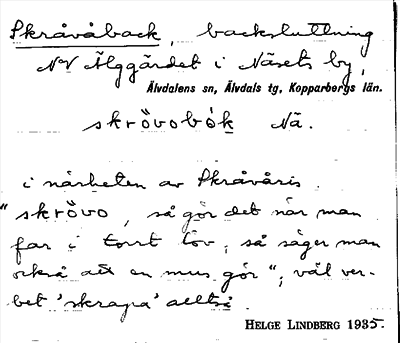 Skråvåback, backsluttning
NV Älggärdet i Näsets by,
Älvdalens sn, Älvdals tg, Kopparbergs län.
skrövobòk Nä.
i närheten av Skråvåris.
"skrövo, så gör det när man
far i torrt löv, så säger man
också att en mus gör", väl ver-
bet 'skrapa' alltså
HELGE LINDBERG 1935.